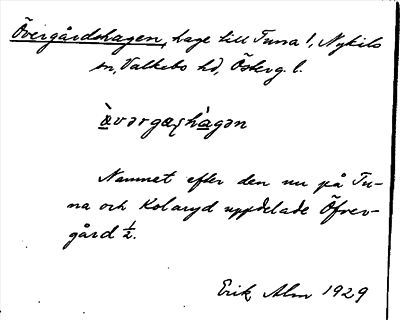 Övergårdshagen, hage till Tuna!, Nykils
sn, Valkebo hd, Österg. l.
Namnet efter den nu på Tu-
na och Kolaryd uppdelade Öfver-
gård ½.
Erik Alm 1929